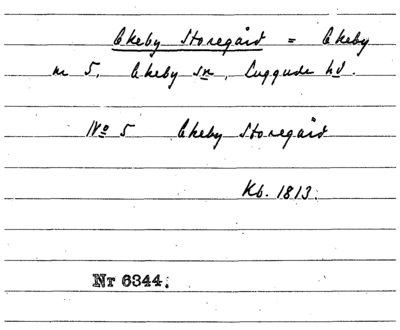 Ekeby Storegård = Ekeby
nr 5, Ekeby sn, Luggude hd.
No 5 Ekeby Storegård
Kb. 1813.
NT 6344.